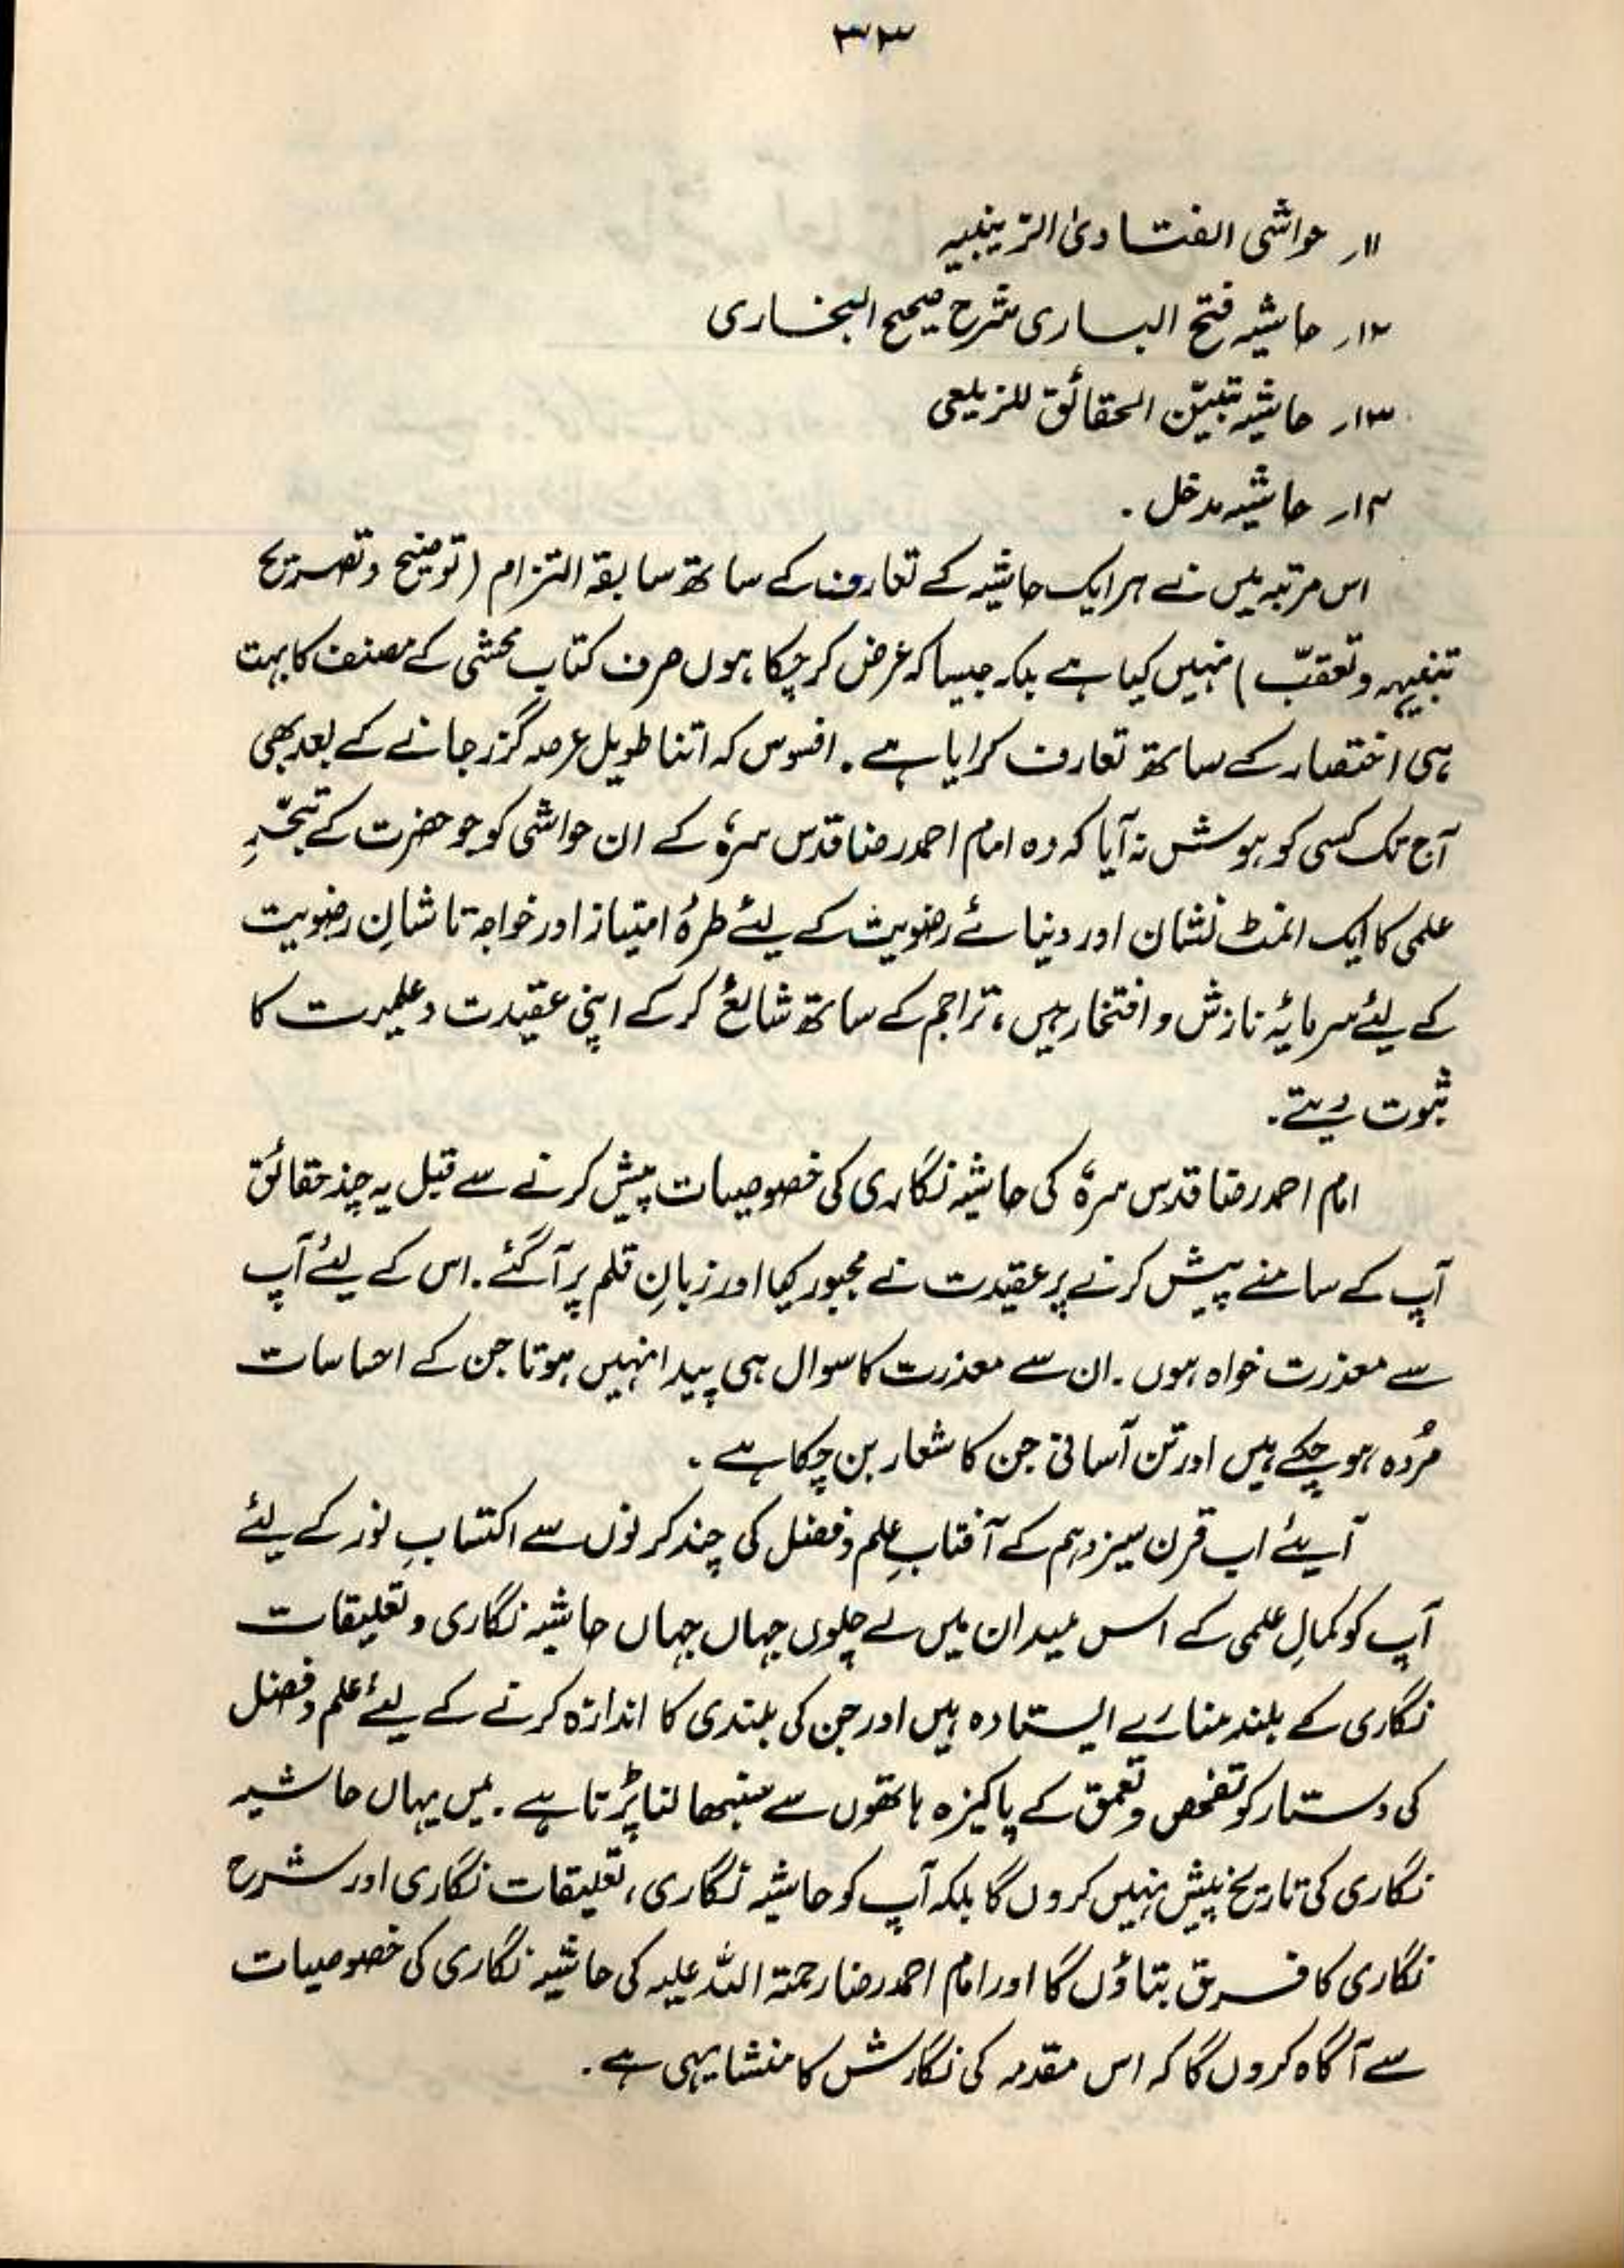 ۳۳
۱۱۔ حواشی الفتاویٰ الزینبیہ
۱۲۔ حاشیہ فتح الباری شرح صحیح البخاری
۱۳۔ حاشیہ تبیّن الحقائق للزیلعی
۱۴۔ حاشیہ مدخل ۔
اس مرتبہ میں نے ہر ایک حاشیہ کے تعارف کے ساتھ سابقۃ التزام (توضیح و تصریح
تنبیہہ و تعقّب) نہیں کیا ہے بلکہ جیسا کہ عرض کر چکا ہوں صرف کتاب محشی کے مصنف کا بہت
ہی اختصار کے ساتھ تعارف کرایا ہے ۔ افسوس کہ اتنا طویل عرصہ گزر جانے کے بعد بھی
آج تک کسی کو ہوشش نہ آیا کہ وہ امام احمد رضا قدس سرہٗ کے ان حواشی کو جو حضرت کے تبحّرِ
علمی کا ایک انمٹ نشان اور دنیائے رضویت کے لیئے طرۂ امتیاز اور خواجہ تا شانِ رضویت
کے لیئے سرمایۂ نازش و افتخار ہیں، تراجم کے ساتھ شائع کر کے اپنی عقیدت و علمیت کا
ثبوت دیتے۔
امام احمد رضا قدس سرہٗ کی حاشیہ نگاری کی خصوصیات پیش کرنے سے قبل یہ چند حقائق
آپ کے سامنے پیش کرنے پر عقیدت نے مجبور کیا اور زبانِ قلم پر آ گئے ۔ اس کے لیئے آپ
سے معذرت خواہ ہوں ۔ ان سے معذرت کا سوال ہی پیدا نہیں ہوتا جن کے احساسات
مُردہ ہو چکے ہیں اور تن آسانی جن کا شعار بن چکا ہے ۔
آیئے اب قرن سیزدہم کے آفتابِ علم و فضل کی چند کرنوں سے اکتسابِ نور کے لیئے
آپ کو کمالِ علمی کے اس میدان میں لے چلوں جہاں جہاں حاشیہ نگاری و تعلیقات
نگاری کے بلند منارے ایستادہ ہیں اور جن کی بلندی کا اندازہ کرنے کے لیئے علم و فضل
کی دستار کو تفحص و تعمق کے پاکیزہ ہاتھوں سے سنبھالنا پڑتا ہے ۔ میں یہاں حاشیہ
نگاری کی تاریخ پیش نہیں کروں گا بلکہ آپ کو حاشیہ نگاری، تعلیقات نگاری اور شرح
نگاری کا فرق بتاؤں گا اور امام احمد رضا رحمتہ اللہ علیہ کی حاشیہ نگاری کی خصوصیات
سے آگاہ کروں گا کہ اس مقدمہ کی نگارش کا منشا یہی ہے ۔